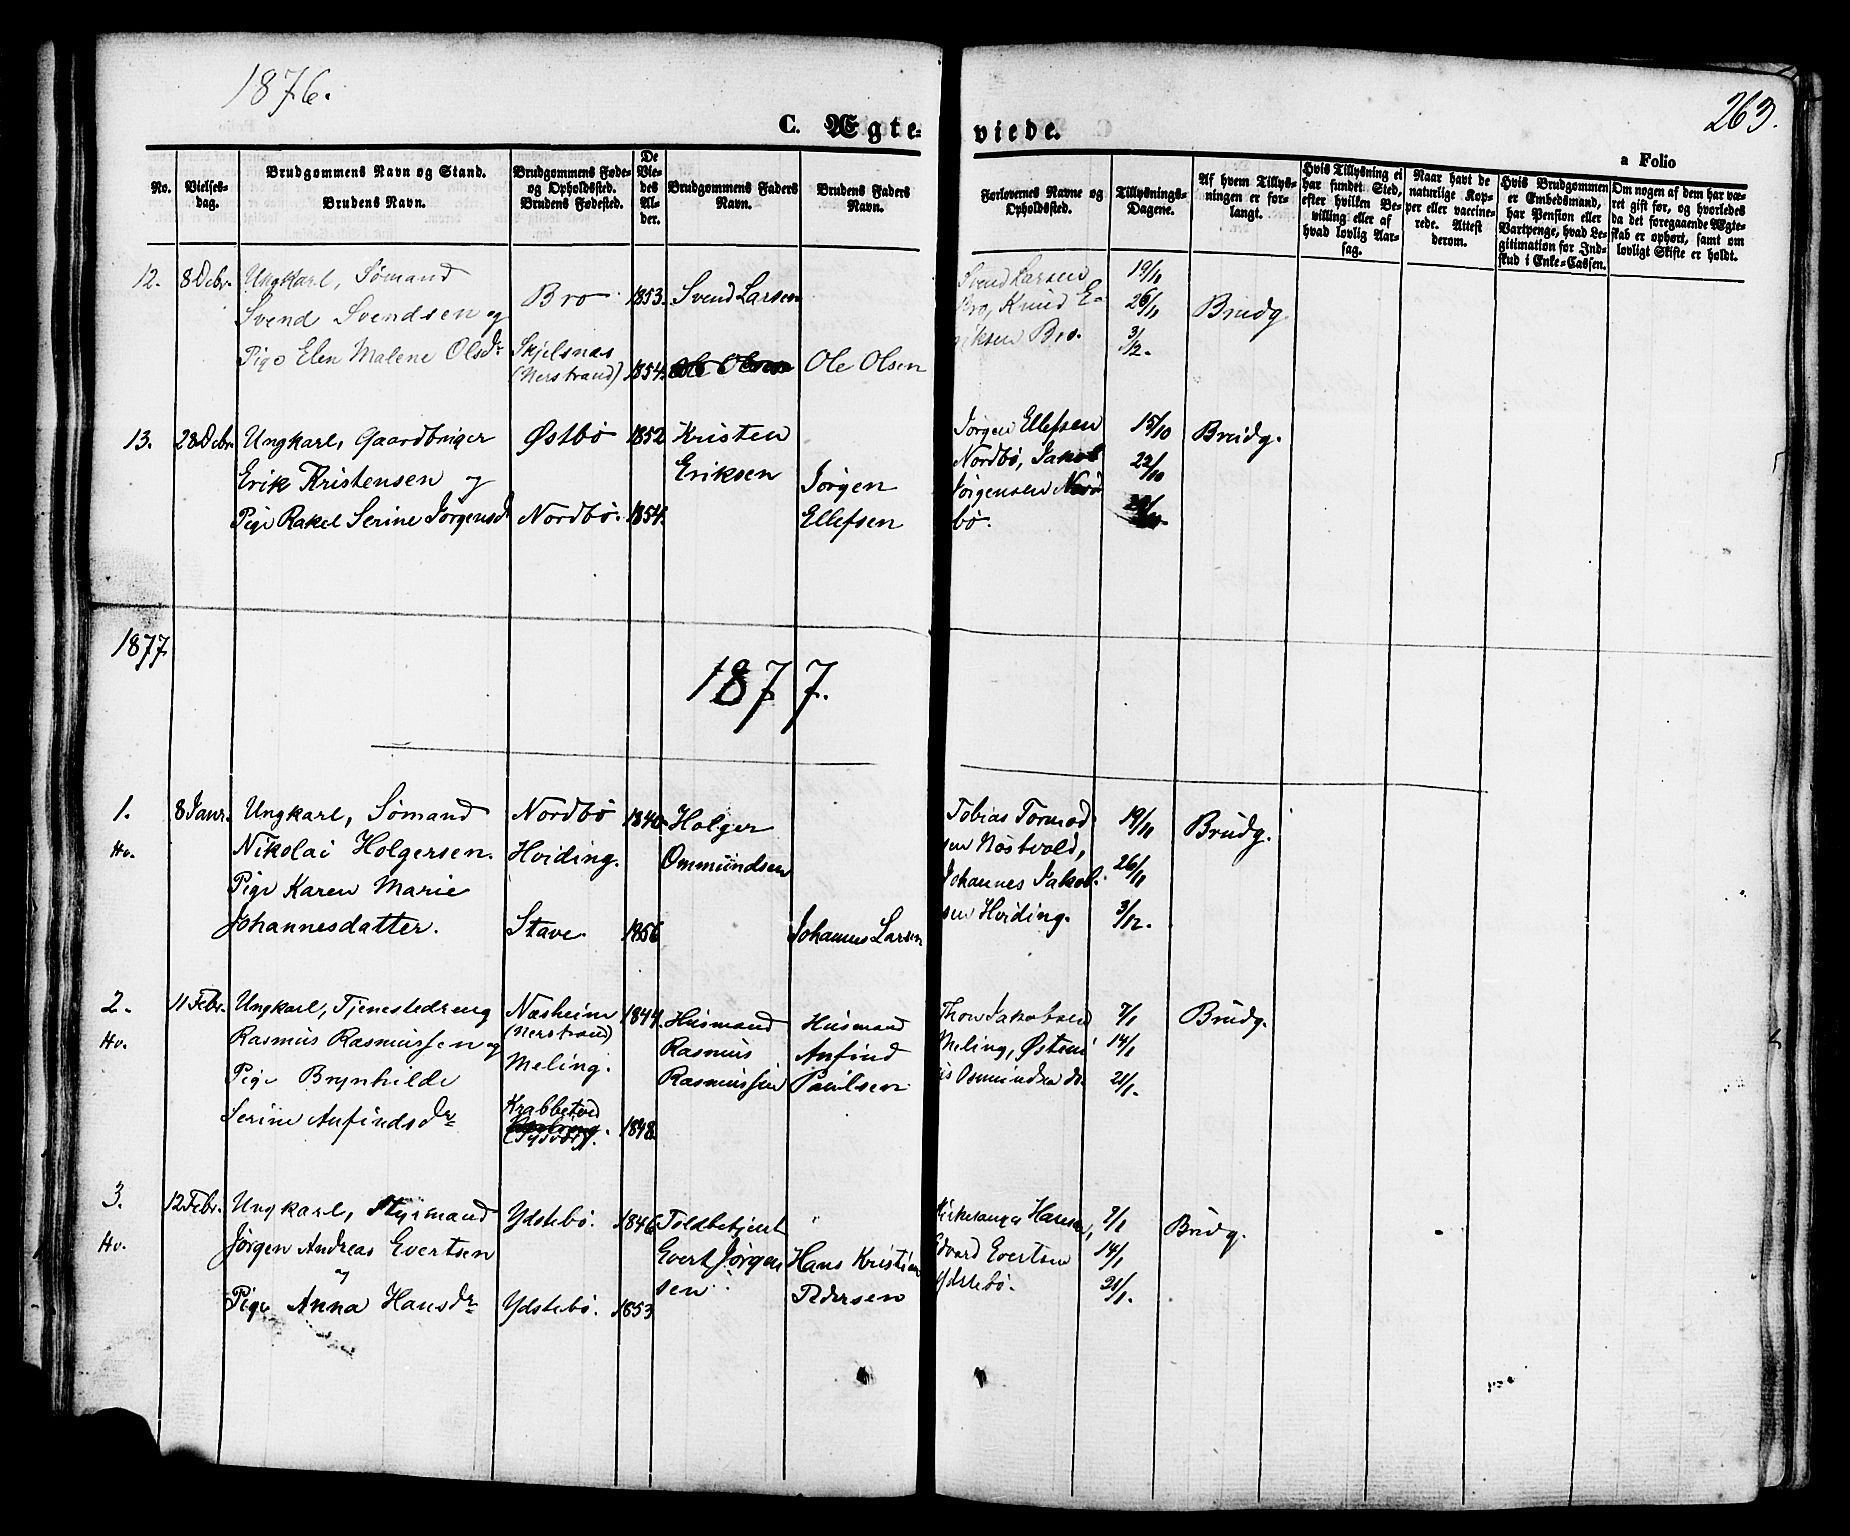 1876.
263.
C. Ægte-viede.
a Folio
No.
Vielses-
dag.
Brudgommens Navn og Stand.
Brudens Navn.
Brudgommens Føde-
og Opholdssted.
Brudens Fødested.
De
Vie-
des
Al-
der.
Brudgommens Faders
Navn.
Brudens Faders
Navn.
Forlovernes Navne og
Opholdssted.
Tillysnings-
Dagene.
Af hvem Tillys-
ningen er for-
langt.
Hvis Tillysning ei
har fundet Sted,
efter hvilken Be-
villing eller af
hvad lovlig Aar-
sag.
Naar havt de
naturlige Kop-
per eller vaccine-
rede. Attest
derom.
Hvis Brudgommen
er Embedsmand,
har Pension eller
Vartpenge, hvad Le-
gitimation for Ind-
skud i Enke-Cassen.
Om nogen af dem har væ-
ret gift før, og hvorledes
da det foregaaende Ægte-
skab er ophørt, samt om
lovligt Skifte er holdt.
12. 8 Debr. Ungkarl, Sømand
Svend Svendsen og
Pige Elen Malene Olsdr
Bro 1853. Svend Larsen
Skjelsnas
(Nerstrand) 1854. Ole Olsen Ole Olsen
Svend Larsen
Bro, Knud E-
riksen Bro.
19/11
26/11
3/12.
Brudg
13. 28 Debr. Ungkarl, Gaardbruger
Erik Kristensen og
Pige Rakel Serine Jørgensdr
Østbø 1852 Kristen
Eriksen
Nordbø. 1854.
Jørgen
Ellefsen
Jørgen Ellefsen
Nordbø, Jakob
Jørgensen
bø.
15/10
22/10
Brudg.
1877
1877.
1. 8 Janr. Ungkarl, Sømand
Hv. Nikolai Holgersen.
Pige Karen Marie
Johannesdatter.
Nordbø 1840. Holger
Hviding. Ommundsen
Stave 1856 Johannes Larsen
Tobias Tormod-
sen Nøstvold,
Johannes Jakob-
sen Hviding.
19/11
26/11
3/12.
Brudg.
2. 11 Febr. Ungkarl, Tjenestedreng
Hv. Rasmus Rasmussen og
Pige Brynhilde
Serine Anfindsdr
Næsheim 1844.
(Nerstrand)
Meling.
Krabbetved
1848.
Husmand
Rasmus
Rasmussen
Husmand
Anfind
Paulsen
Thor Jakobsen
Meling, Østen
Osmundsen do.
7/1
14/1
21/1.
Brudg.
3. 12 Febr. Ungkarl, Styrmand
Hv. Jørgen Andreas Evertsen
og
Pige Anna Hansdr
Ydstebø. 1846
Ydstebø. 1853
Toldbetjent
Evert Jørgen-
sen.
"
Hans Kristian
Pedersen
Kirkesanger Hansen,
Edvard Evertsen
Ydstebø.
7/1
14/1
21/1.
Brudg.